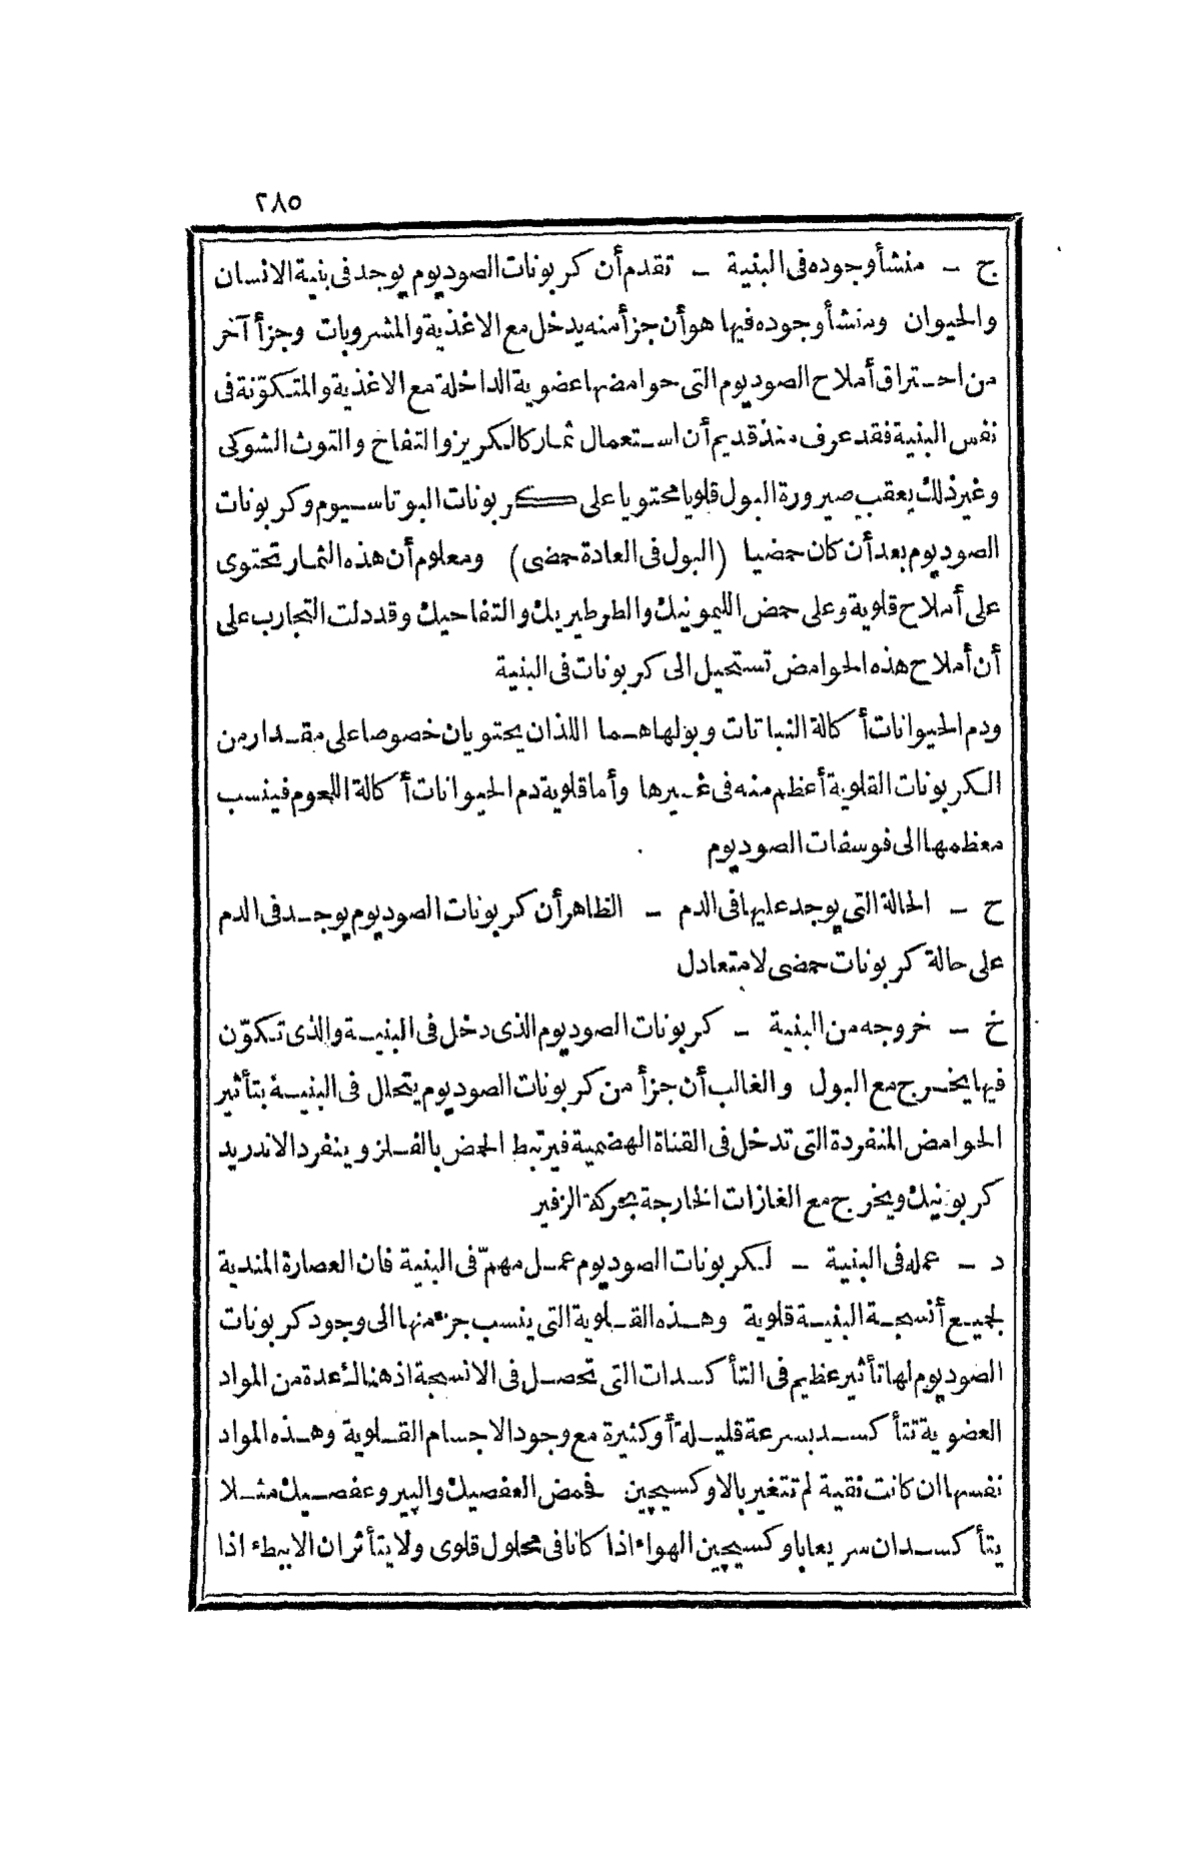 ٢٨٥
ج ـ منشأ وجوده فى البنية ـ تقدم أن كربونات الصوديوم يوجد فى بنية الانسان
والحيوان ومنشأ وجوده فيها هو أن جزأ منه يدخل مع الاغذية والمشروبات وجزأ آخر
من احتراق أملاح الصوديوم التى حوامضها عضوية الداخلة مع الاغذية والمتكوّنة فى
نفس البنية فقد عرف منذ قديم أن استعمال ثمار كالكريز والتفاح والتوث الشوكى
وغير ذلك يعقب صيرورة البول قلويا محتويا على كربونات البوتاسيوم وكربونات
الصوديوم بعد أن كان حمضيا (البول فى العادة حمضى) ومعلوم أن هذه الثمار تحتوى
على أملاح قلوية وعلى حمض الليمونيك والطرطيريك والتفاحيك وقد دلت التجارب على
أن أملاح هذه الحوامض تستحيل الى كربونات فى البنية
ودم الحيوانات أكالة النباتات وبولها هما اللذان يحتويان خصوصا على مقدار من
الكربونات القلوية أعظم منه فى غيرها وأما قلوية دم الحيوانات أكالة اللحوم فينسب
معظمها الى فوسفات الصوديوم
ح ـ الحالة التى يوجد عليها فى الدم ـ الظاهر أن كربونات الصوديوم يوجد فى الدم
على حالة كربونات حمضى لا متعادل
خ ـ خروجه من البنية ـ كربونات الصوديوم الذى دخل فى البنية والذى تكوّن
فيها يخرج مع البول والغالب أن جزأ من كربونات الصوديوم يتحلل فى البنية بتأثير
الحوامض المنفردة التى تدخل فى القناة الهضمية فيرتبط الحمض بالفلز وينفرد الاندريد
كربونيك ويخرج مع الغازات الخارجة بحركة الزفير
د ـ عمله فى البنية ـ لكربونات الصوديوم عمل مهمّ فى البنية فان العصارة المندية
لجميع أنسجة البنية قلوية وهذه القلوية التى ينسب جزء منها الى وجود كربونات
الصوديوم لها تأثير عظيم فى التأكسدات التى تحصل فى الانسجة اذ هناك عدة من المواد
العضوية تتأكسد بسرعة قليلة أو كثيرة مع وجود الاجسام القلوية وهذه المواد
نفسها ان كانت نقية لم تتغير بالاوكسيچين فحمض العفصيك والبيروعفصيك مثلا
يتأكسدان سريعا باوكسيچين الهواء اذا كانا فى محلول قلوى ولا يتأثران الا ببطء اذا